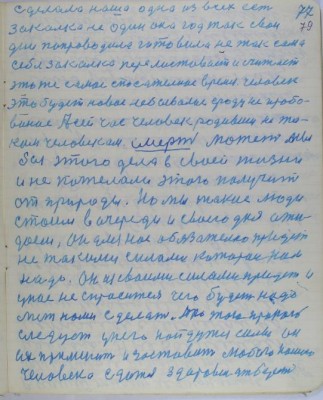 77
сделала наша одна из всех сет
79
закалка не один она год так свои
дни попроводила готовила не так сама
себя закалка перелистывает и считает
это же самое спасательное время человек
это будет новое небывалое сроду не пробо
ванае А сейчас человек родивши не та
ким человеком, смерть может
бы этого дела в своей жизни
и не пожелали этого получит
от природы. Но мы такие люди
стоим в очереди и своего дня ожи
даем, он для нас обязательно придет
не такими силами которая нам
надо. Он из своими силами придет и
у нас не спросится чего будет надо
с нами сделать. Это того
следует у него найдутся силы он
их применит и заставит любого нашего
человека сдатся здоровия твердого